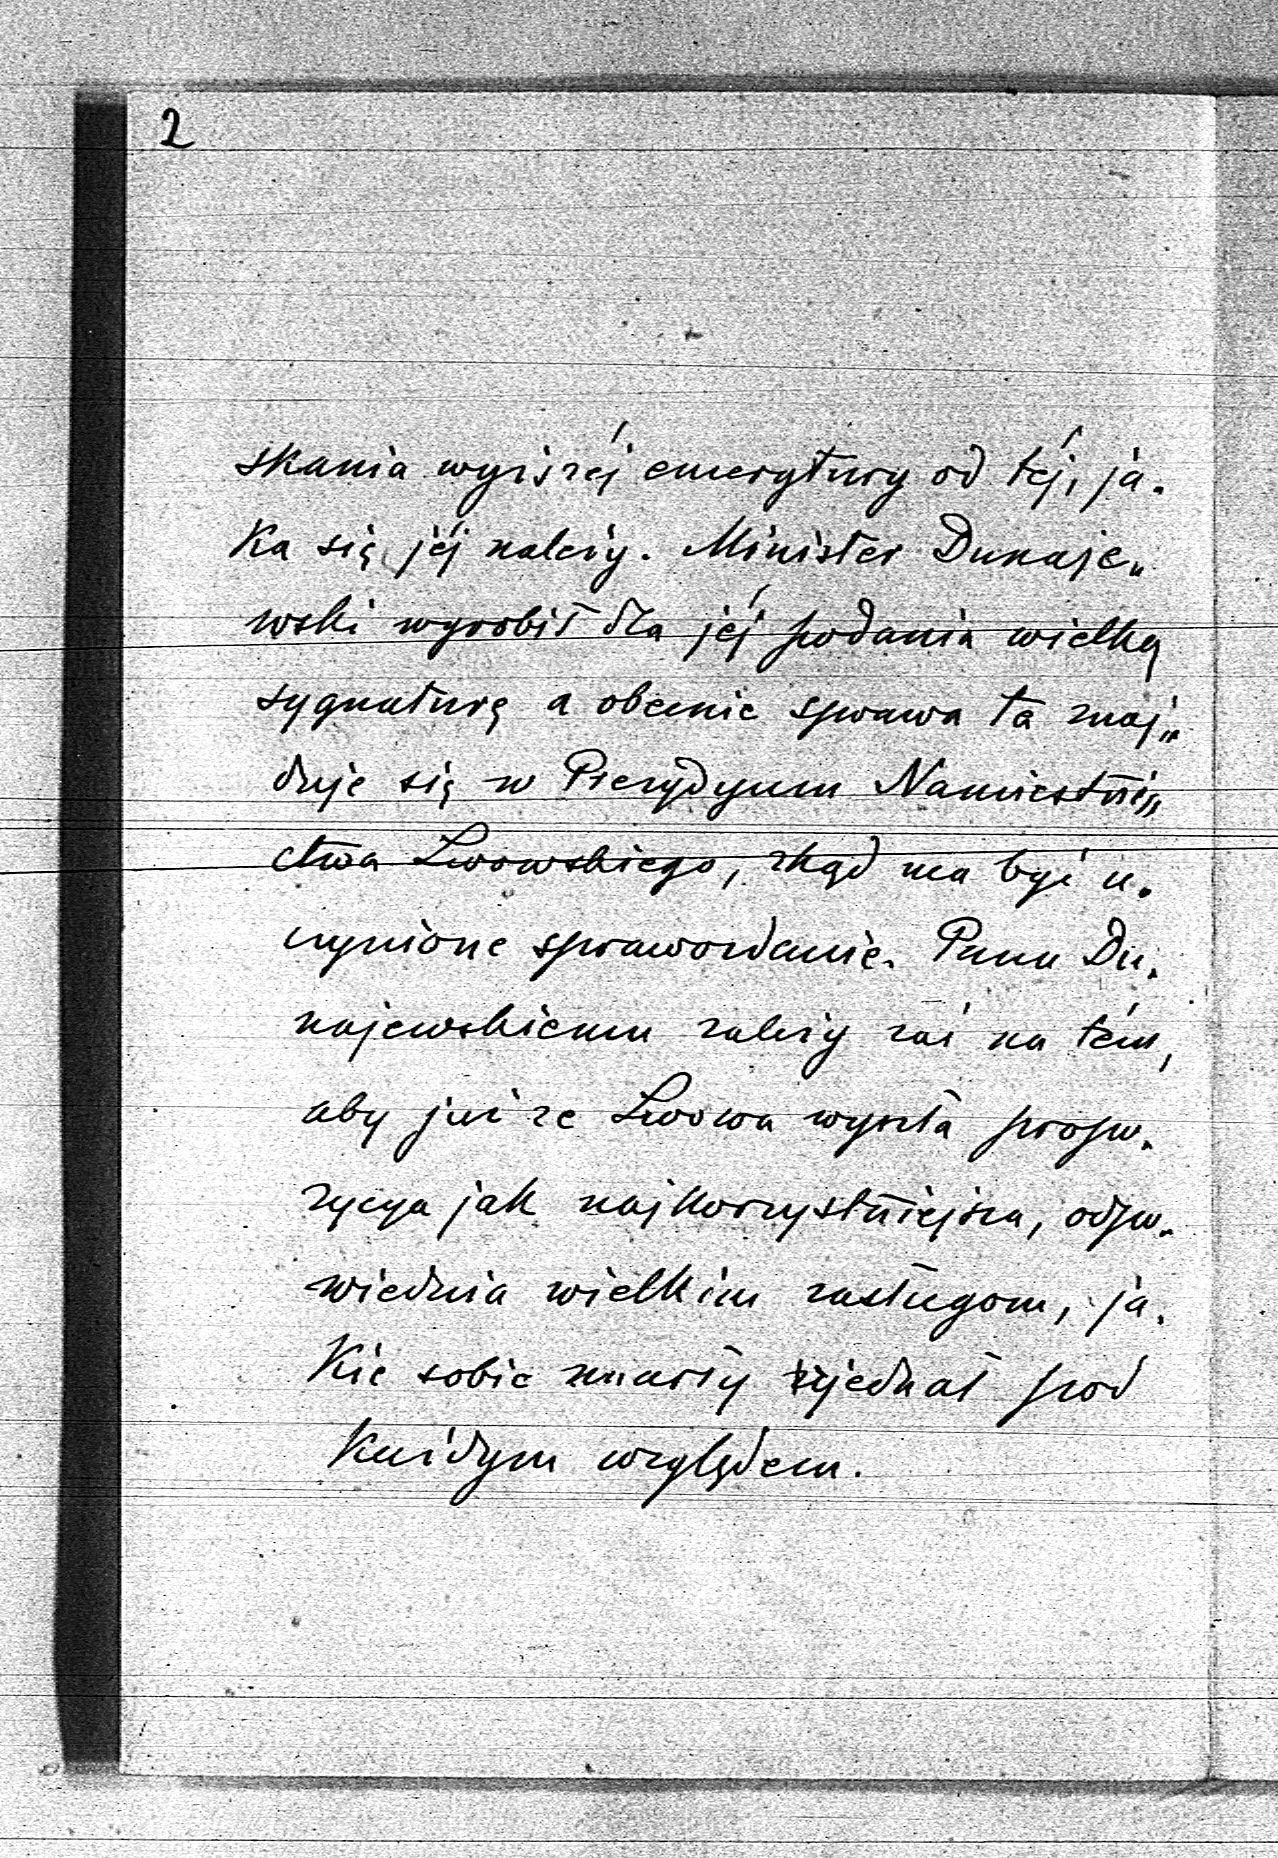 2
skania wyższéj emerytury od téj, ja-
ka się jéj należy. Minister Dunaje„
wski wyrobił dla jéj podania wielką
sygnaturę a obecnie sprawa ta znaj„
duje się w Prezydyum Namiestni„
ctwa Lwowskiego, zkąd ma być u-
czynione sprawozdanie. Panu Du-
najewskiemu zależy zaś na tém,
aby już ze Lwowa wyszła propo-
zycya jak najkorzystniejsza, odpo-
wiednia wielkim zasługom, ja-
kie sobie zmarły zjednał pod
każdym względem.